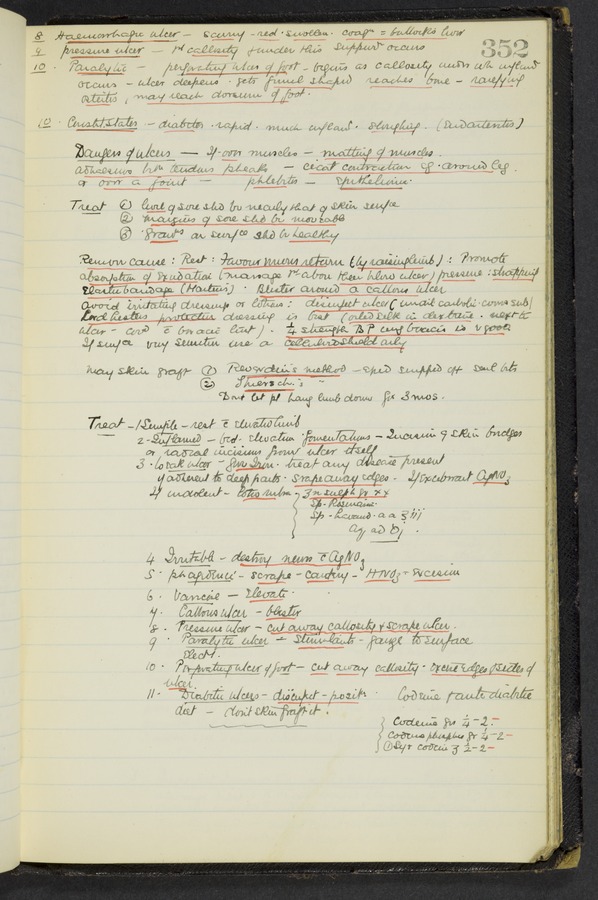 8 Haemorrhagic ulcer - scurvy - red. swollen. coagm = bullocks liver
352
9 pressure ulcer - 1st callosity & under this suppurn occurs
10. Paralytic - perforating ulcer of foot - begins as callosity under wh
occurs - ulcer deepens. gets funnel shaped reaches bone - rarefying
osteitis, may reach dorsum of foot.
Constit. States - diabetes. rapid. much inflamn. sloughing. (Endarteritis)
Dangers of ulcers - If over muscles - matting of muscles.
adhesions btn tendons - cicat contraction eg. around leg.
or over a joint - phlebitis - Epithelioma.
Treat ① level of sore shd be nearly that of skin surface
② margins of sore shd be movable
③ Grans on surface shd be healthy
Remove cause: Rest: Favour venous return (by raising limb): Promote
absorption of Exudation (massage 1st above then below ulcer) pressure: strapping
Elastic bandage (Martin's). Blister around a callous ulcer
avoid irritating dressings or lotions: disinfect ulcer (
Lord Listers protective dressing is best (oiled silk in dextrine. next to
ulcer - covd c̄ boracic lint). ¼ strength BP ung boracis is v good
If surface very sensitive use a celluloid shield only
May skin graft ① Reverdin's method - epid snipped off small bits
② Thiersch's "
Dont let pt hang limb down for 3 mos.
Treat - 1 Simple - rest c̄ elevated limb
2 - Inflamed - bed. elevation fomentations - Incision of skin bridges
or radial incisions from ulcer itself
3. Weak ulcer - Give Iron. treat any disease present
if adherent to deep parts. scrape away edges - If exuberant AgNO3
If indolent - lotio rubra Zn sulph gr xx
Sp. Rosmarini
Sp. Lavand. aa ʒ iii
Aq. ad
4 Irritable - destroy nerves c̄ AgNO3
5. phagedenic - scrape - cautery - HNO3 - Excision
6. Varicose - Elevate.
7. Callous ulcer - blister
8. Pressure ulcer - cut away callosity & scrape ulcer.
9. Paralytic ulcer - Stimulants - gauze to surface
Elect.
10. Perforating ulcer of foot - cut away callosity. excise edges & sides of
ulcer.
11. Diabetic ulcers - disinfect - Codeine & anti diabetic
diet - dont skin graft it.
Codeine grs ¼-2-
Codeine phosphas gr ¼-2-
Syr codein ʒ ½-2-